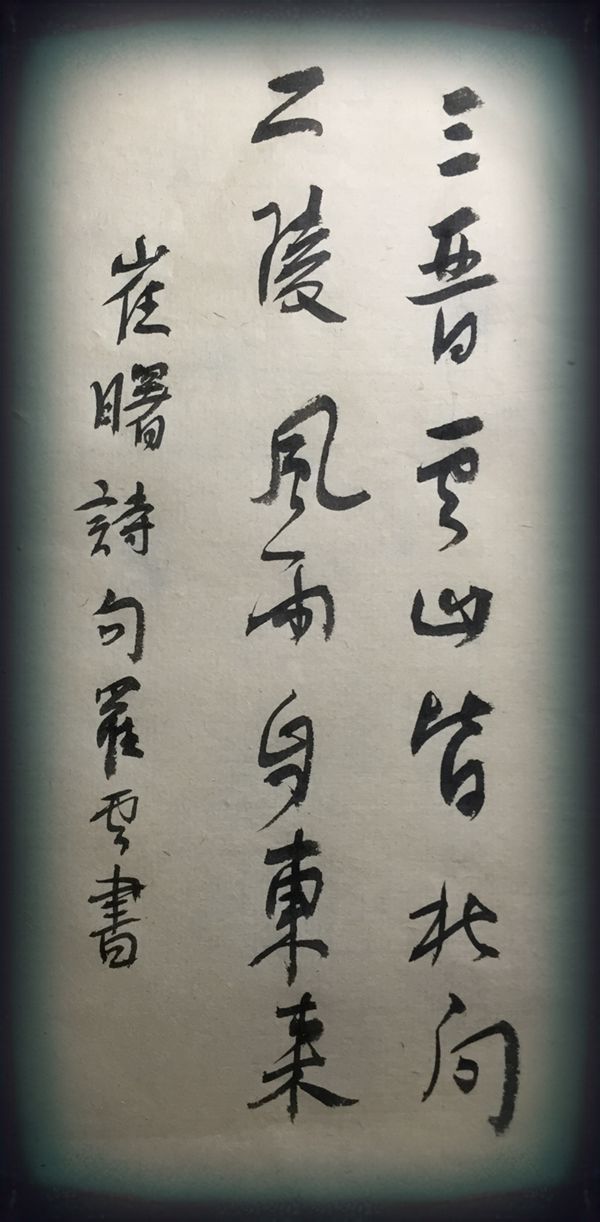 三晋云山皆北向
二陵風雨自東来
崔曙詩句羅雲書